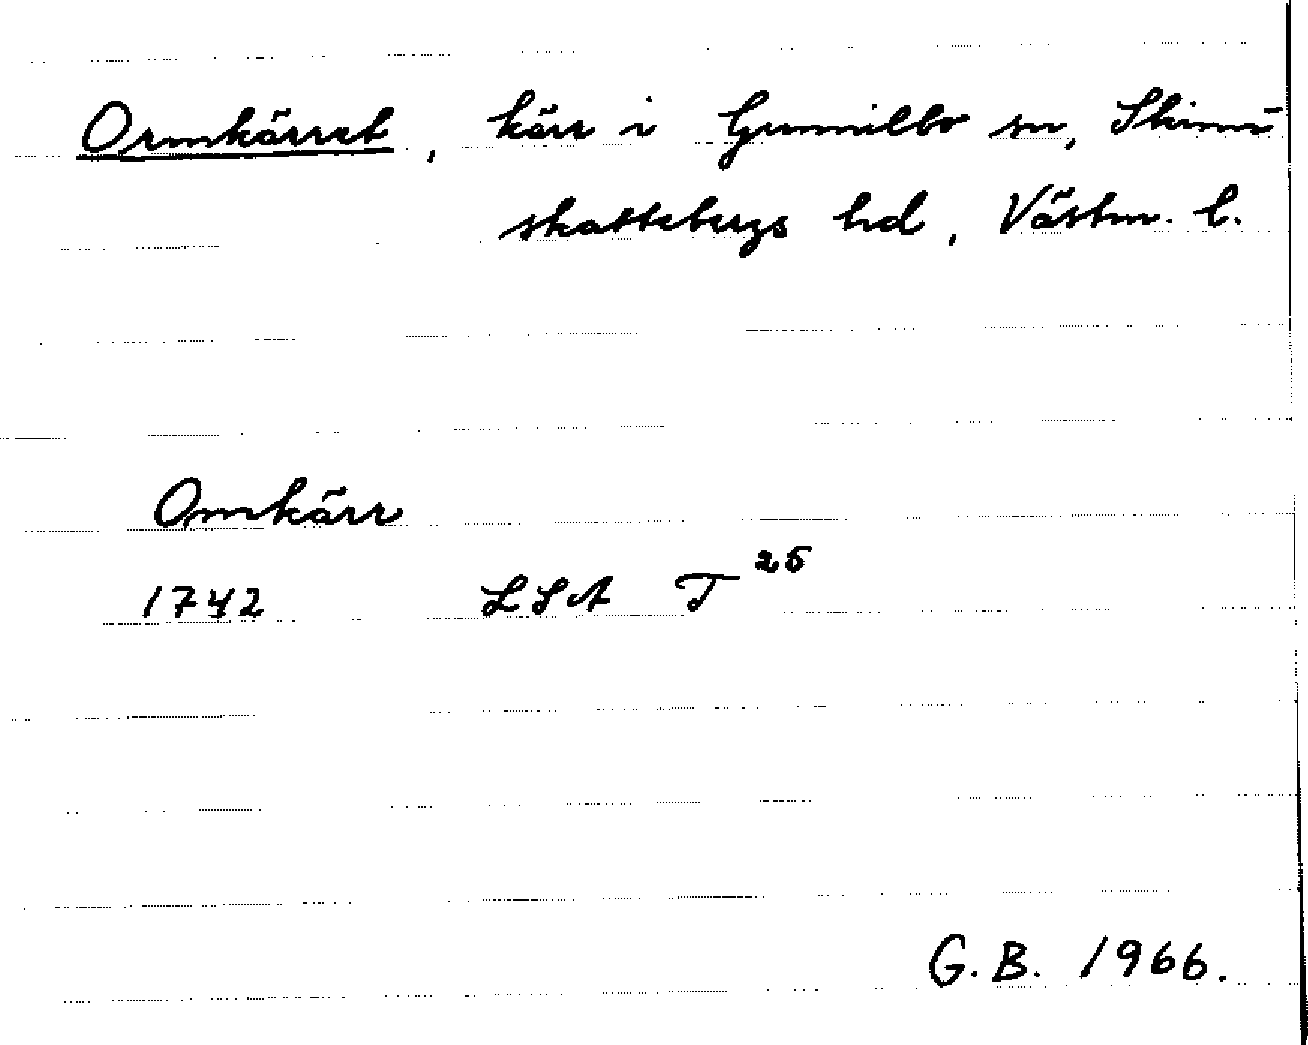 Ormkärret, kärr i Gunnilbo sn, Skinn-
skattebergs hd, Västm. l.
Ormkärr
1742 LSA T 25
G.B. 1966.